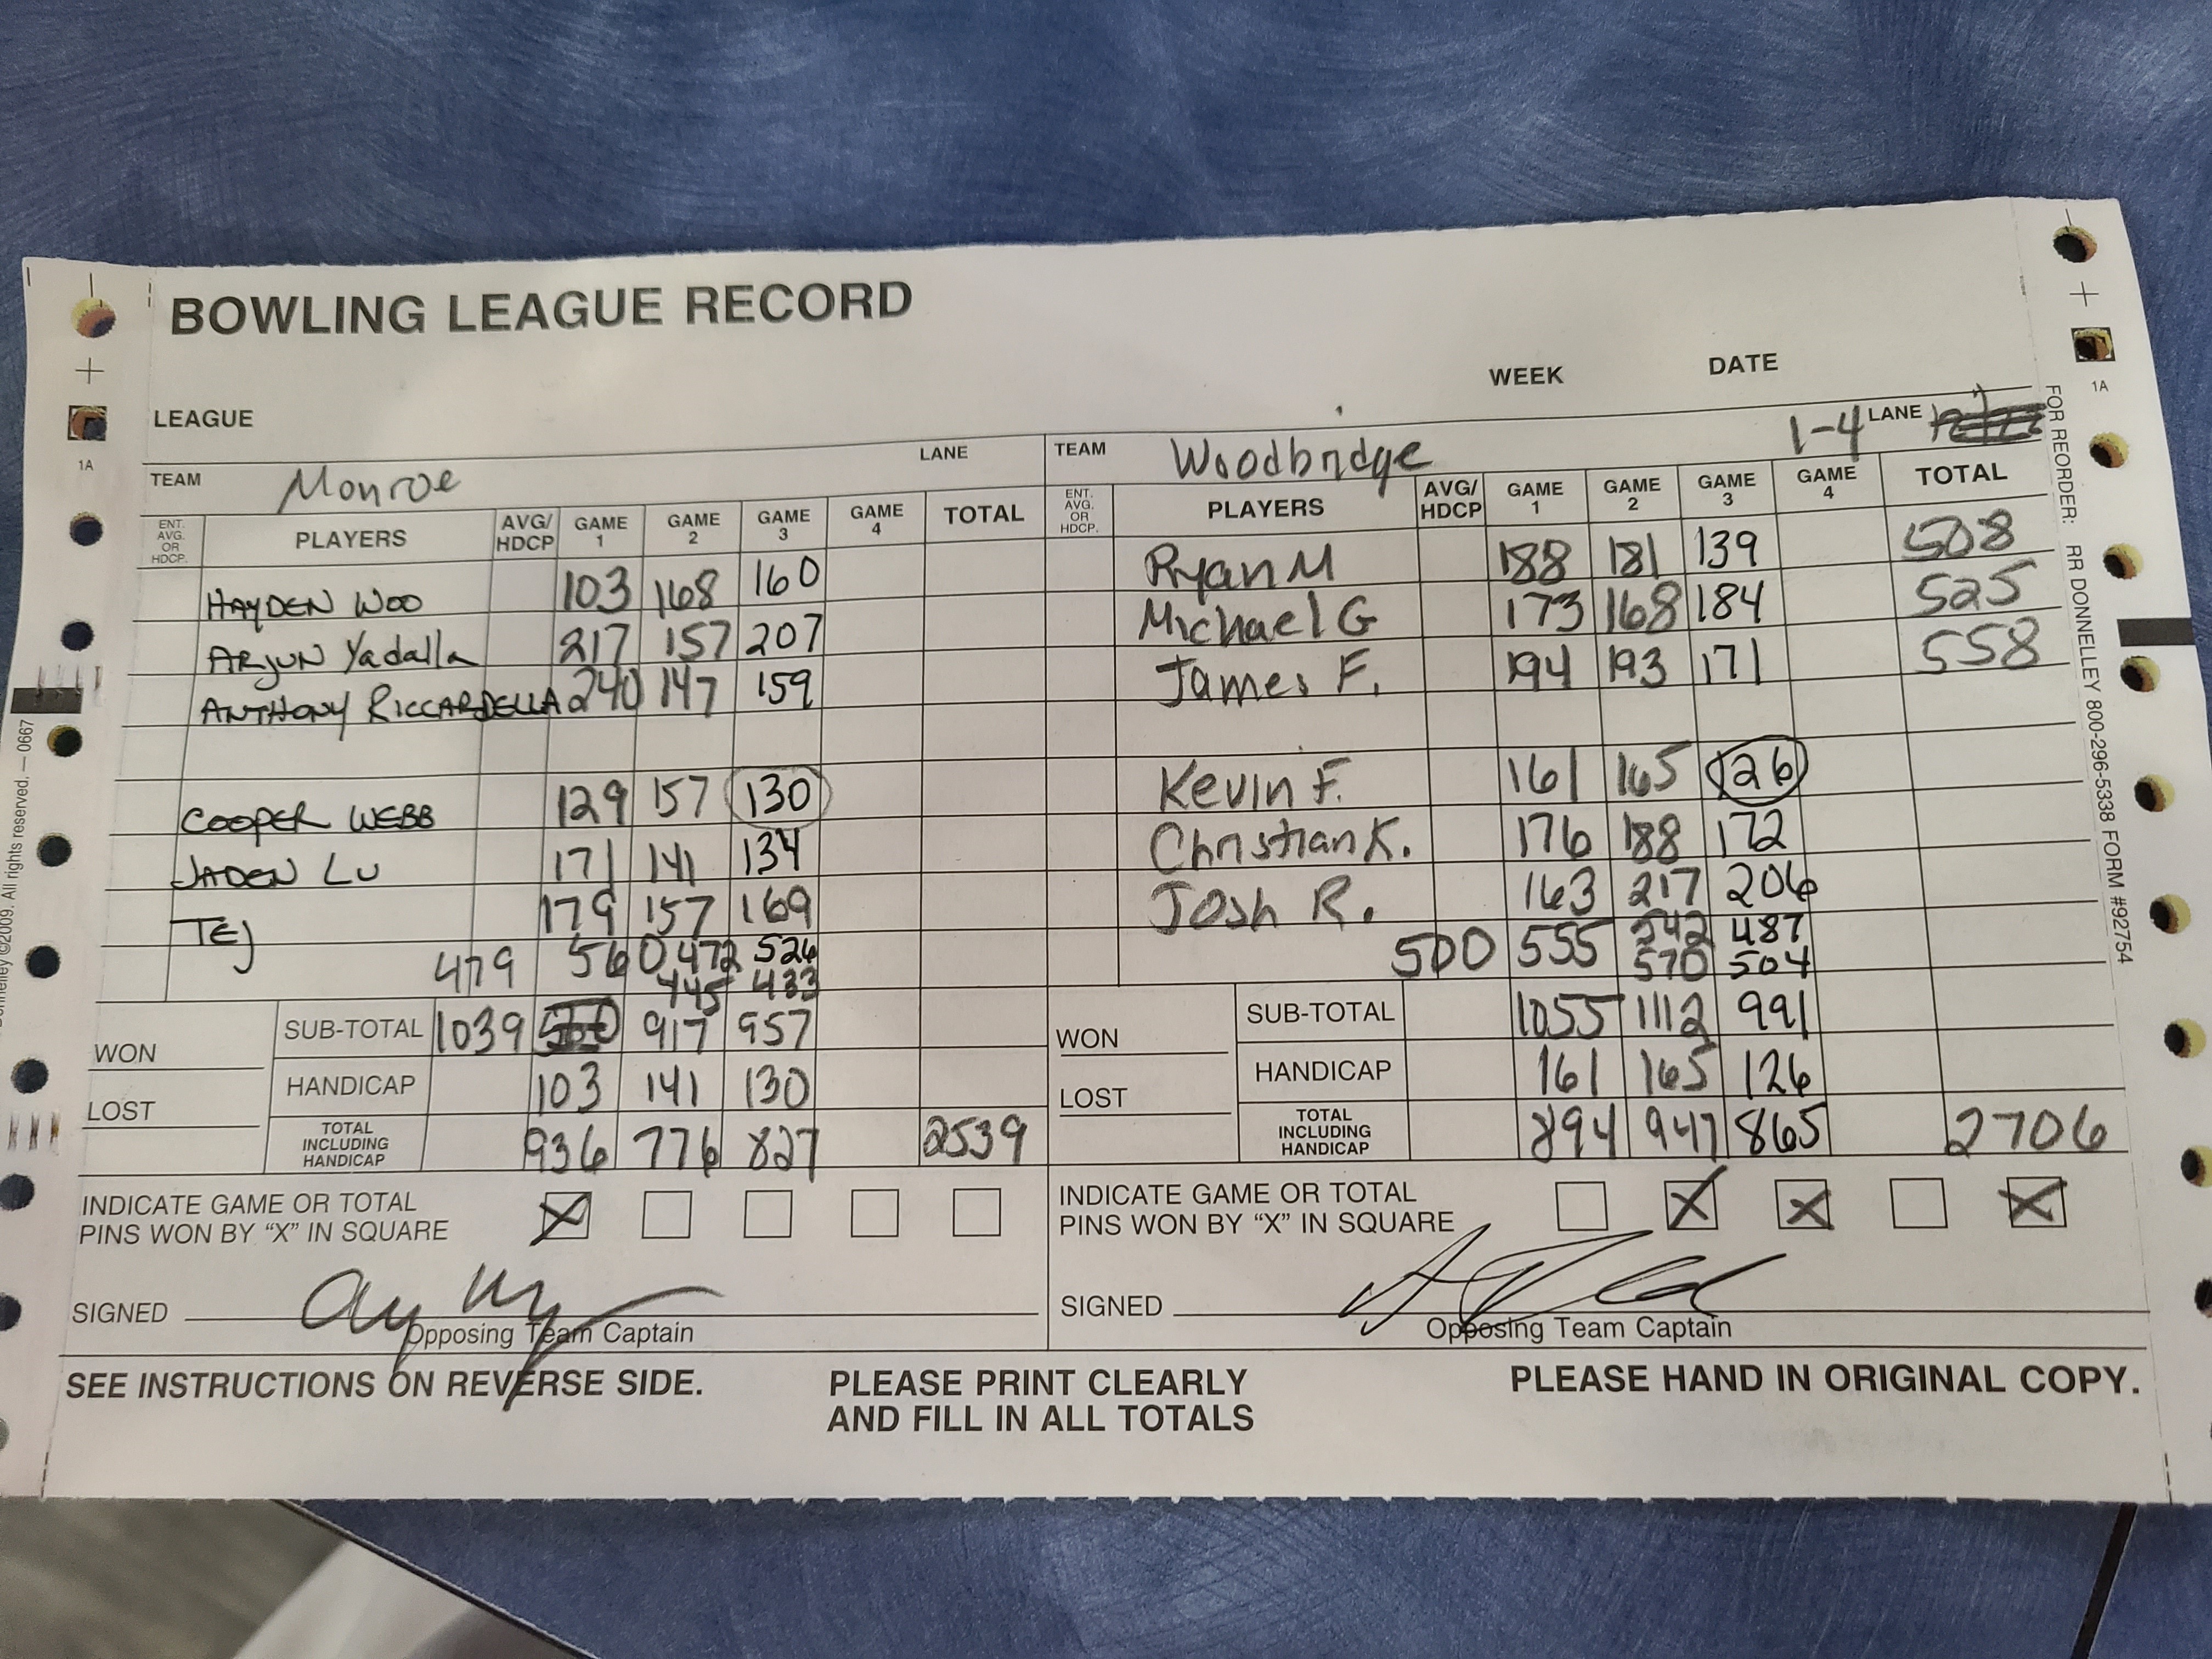 BOWLING LEAGUE RECORD
WEEK DATE
LEAGUE
TEAM Monroe LANE
ENT. AVG. OR HDCP. PLAYERS AVG/HDCP GAME 1 GAME 2 GAME 3 GAME 4 TOTAL
HAYDEN WOO 103 168 160
ARJUN Yadalla 217 157 207
ANTHONY RICCARDELLA 240 147 159
COOPER WEBB 129 157 130
JADEN LU 171 141 134
TEJ 179 157 169
479 560 472 526
445 433
WON SUB-TOTAL 1039 917 957
LOST HANDICAP 103 141 130
TOTAL INCLUDING HANDICAP 936 776 827 2539
INDICATE GAME OR TOTAL
PINS WON BY "X" IN SQUARE X
SIGNED
Opposing Team Captain
TEAM Woodbridge 1-4 LANE
ENT. AVG. OR HDCP. PLAYERS AVG/HDCP GAME 1 GAME 2 GAME 3 GAME 4 TOTAL
Ryan M 188 181 139 508
Michael G 173 168 184 525
James F. 194 193 171 558
Kevin F. 161 165 126
Christian K. 176 188 172
Josh R. 163 217 206
500 555 542 487
570 504
WON SUB-TOTAL 1055 1112 991
LOST HANDICAP 161 165 126
TOTAL INCLUDING HANDICAP 894 947 865 2706
INDICATE GAME OR TOTAL
PINS WON BY "X" IN SQUARE X X X
SIGNED
Opposing Team Captain
SEE INSTRUCTIONS ON REVERSE SIDE.
PLEASE PRINT CLEARLY
AND FILL IN ALL TOTALS
PLEASE HAND IN ORIGINAL COPY.
1A
1A
©2009. All rights reserved. — 0667
FOR REORDER: RR DONNELLEY 800-296-5338 FORM #92754